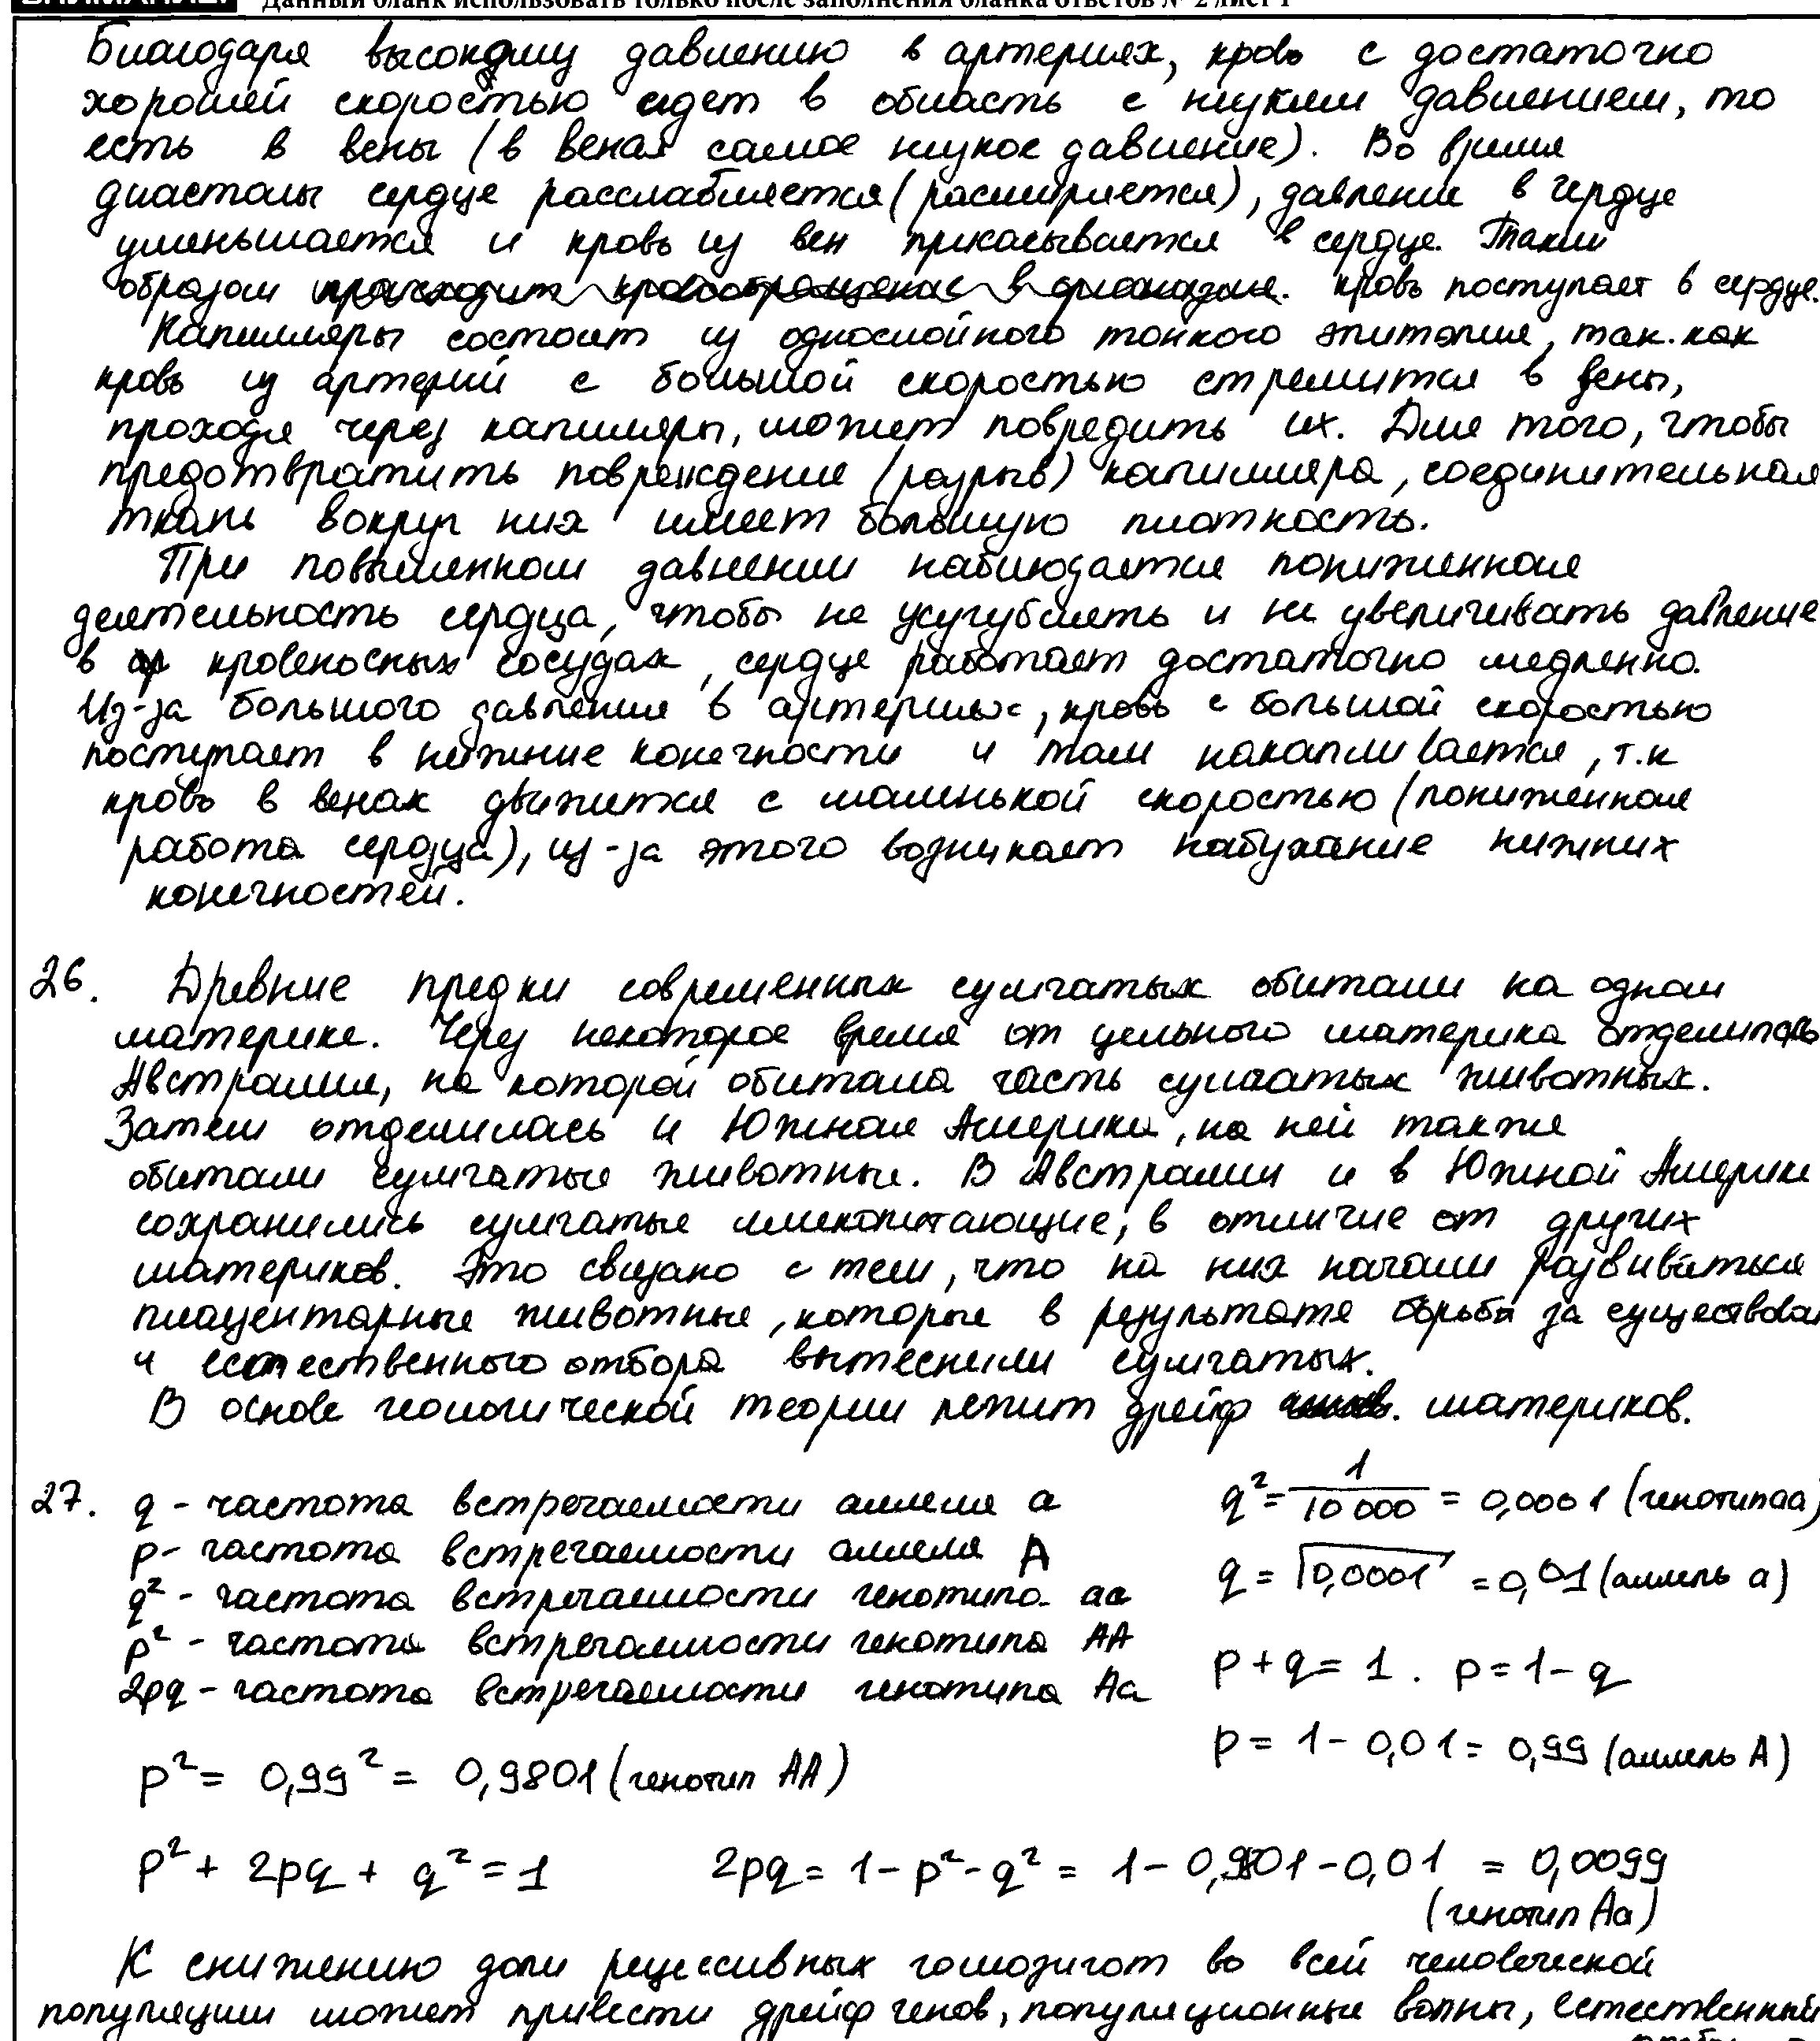 Данный бланк использовать только после заполнения бланка ответов № 2 лист 1
Благодаря высокому давлению в артериях, кровь с достаточно
хорошей скоростью идет в область с низким давлением, то
есть в вены (в венах самое низкое давление). Во время
диастолы сердце расслабляется (расширяется), давление в сердце
уменьшается и кровь из вен прикасывается в сердце. Таким
образом происходит кровообращение в организме. кровь поступает в сердце.
Капилляры состоит из однослойного тонкого эпителия, так.как
кровь из артерий с большой скоростью стремится в вены,
проходя через капилляры, может повредить их. Для того, чтобы
предотвратить повреждение (разрыв) капилляра, соединительная
ткань вокруг них имеет большую плотность.
При повышенном давлении наблюдается пониженная
деятельность сердца, чтобы не усугублять и не увеличивать давление
в кровеносных сосудах, сердце работает достаточно медленно.
Из-за большого давления в артериях, кровь с большой скоростью
поступает в нижние конечности и там накапливается, т.к
кровь в венах движится с маленькой скоростью (пониженная
работа сердца), из-за этого возникает набухание нижних
конечностей.
26. Древние предки современных сумчатых обитали на одном
материке. Через некоторое время от цельного материка отделилась
Австралия, на которой обитала часть сумчатых животных.
Затем отделилась и Южная Америка, на ней также
обитали сумчатые животные. В Австралии и в Южной Америке
сохранились сумчатые млекопитающие, в отличие от других
материков. Это связано с тем, что на них начали развиваться
плацентарные животные, которые в результате борьбы за существован
и естественного отбора вытеснили сумчатых.
В основе геологической теории лежит дрейф материков.
27. q - частота встречаемости аллеля a q² = 1/10 000 = 0,0001 (генотип aa)
p - частота встречаемости аллеля A
q² - частота встречаемости генотипа aa q = √0,0001 = 0,01 (аллель a)
p² - частота встречаемости генотипа AA
2pq - частота встречаемости генотипа Aa p + q = 1. p = 1 - q
p² = 0,99² = 0,9801 (генотип AA) p = 1 - 0,01 = 0,99 (аллель A)
p² + 2pq + q² = 1 2pq = 1 - p² - q² = 1 - 0,9801 - 0,01 = 0,0099
(генотип Aa)
К снижению доли рецессивных гомозигот во всей человеческой
популяции может привести дрейф генов, популяционные волны, естественный